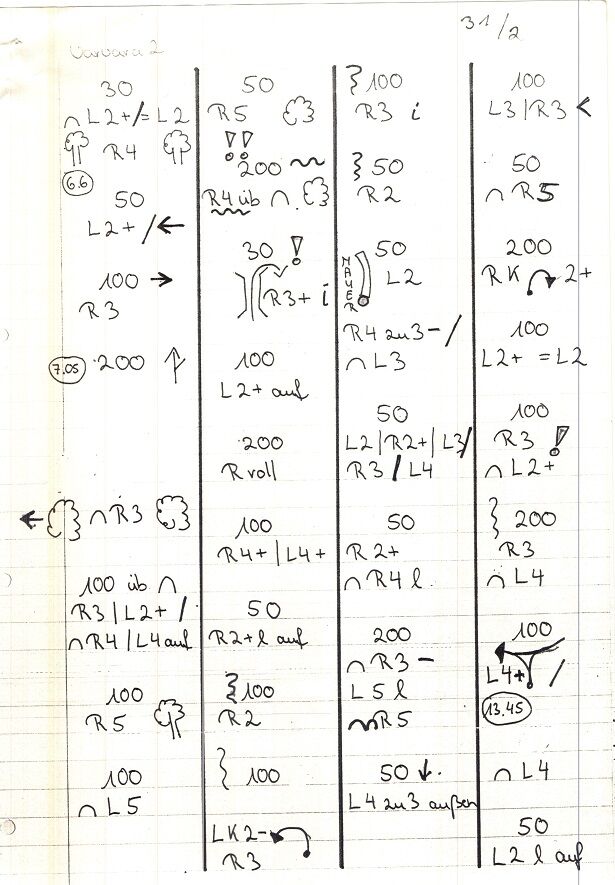 31/2
Varvara 2
30
∩ L2+/= L2
R4
6.6
50
L2+ / ←
100 →
R3
7.05 200
∩ R3
100 üb ∩
R3 | L2+ /
∩ R4 | L4 auf
100
R5
100
∩ L5
50
R5
!!
200
R4 üb ∩
30 !
R3+ i
100
L2+ auf
200
R voll
100
R4+ | L4+
50
R2+ l auf
100
R2
100
LK2-
R3
100
R3 i
50
R2
MAUER
50
L2
R4 zu 3- /
∩ L3
50
L2 | R2+ | L3/
R3 / L4
50
R2+
∩ R4 l
200
∩ R3 -
L5 l
R5
50 ↓
L4 zu 3 außen
100
L3 | R3 <
50
∩ R5
200
RK 2+
100
L2+ = L2
100
R3 !
∩ L2+
200
R3
∩ L4
100
L4+ /
13.45
∩ L4
50
L2 l auf